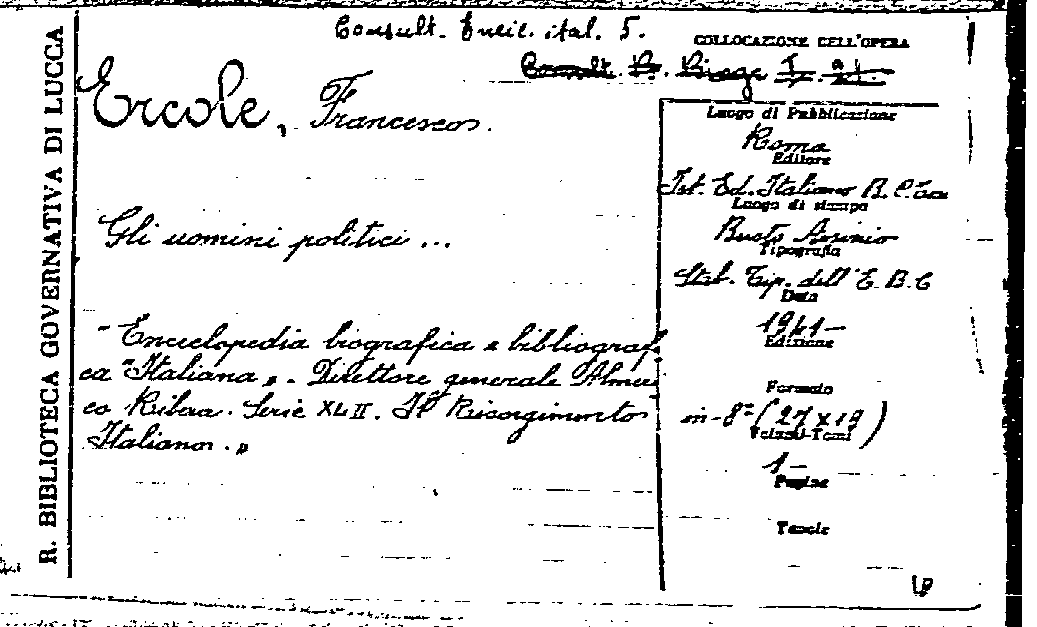 R. BIBLIOTECA GOVERNATIVA DI LUCCA
Consult. Encic. ital. 5.
COLLOCAZIONE DELL'OPERA
Ercole, Francesco.
Gli uomini politici ...
"Enciclopedia biografica e bibliografi
ca "Italiana". Direttore generale Almeri
co Ribera. Serie XLII. Il Risorgimento
Italiano."
Luogo di Pubblicazione
Roma
Editore
Ist. Ed. Italiano B. C.
Luogo di stampa
Busto Arsizio
Tipografia
Stab. Tip. dell' E. B. C
Data
1941-
Edizione
Formato
in-8º (27 x 19)
Volumi-Tomi
1-
Pagine
Tavole